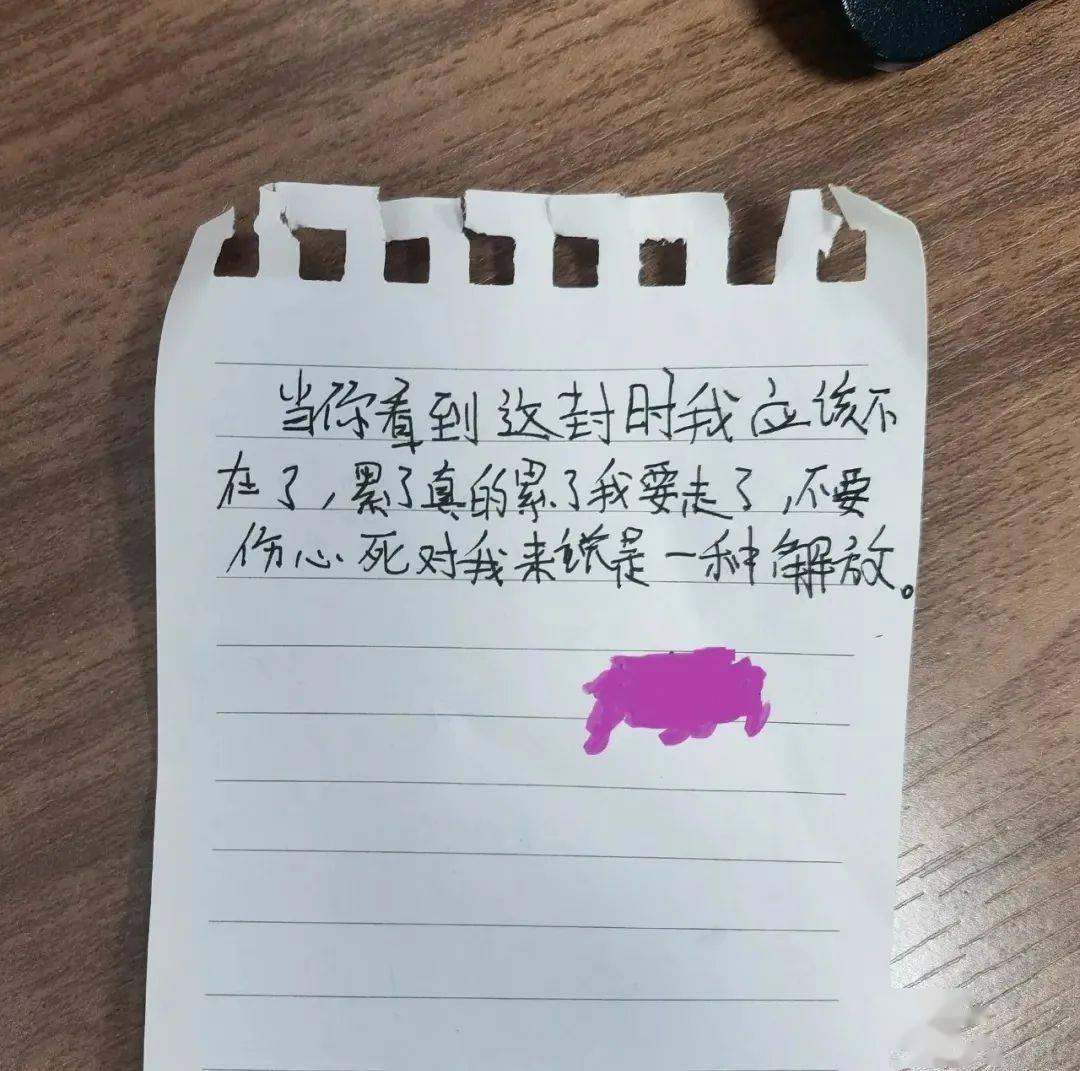 当你看到这封时我应该不
在了，累了真的累了我要走了，不要
伤心死对我来说是一种解放。